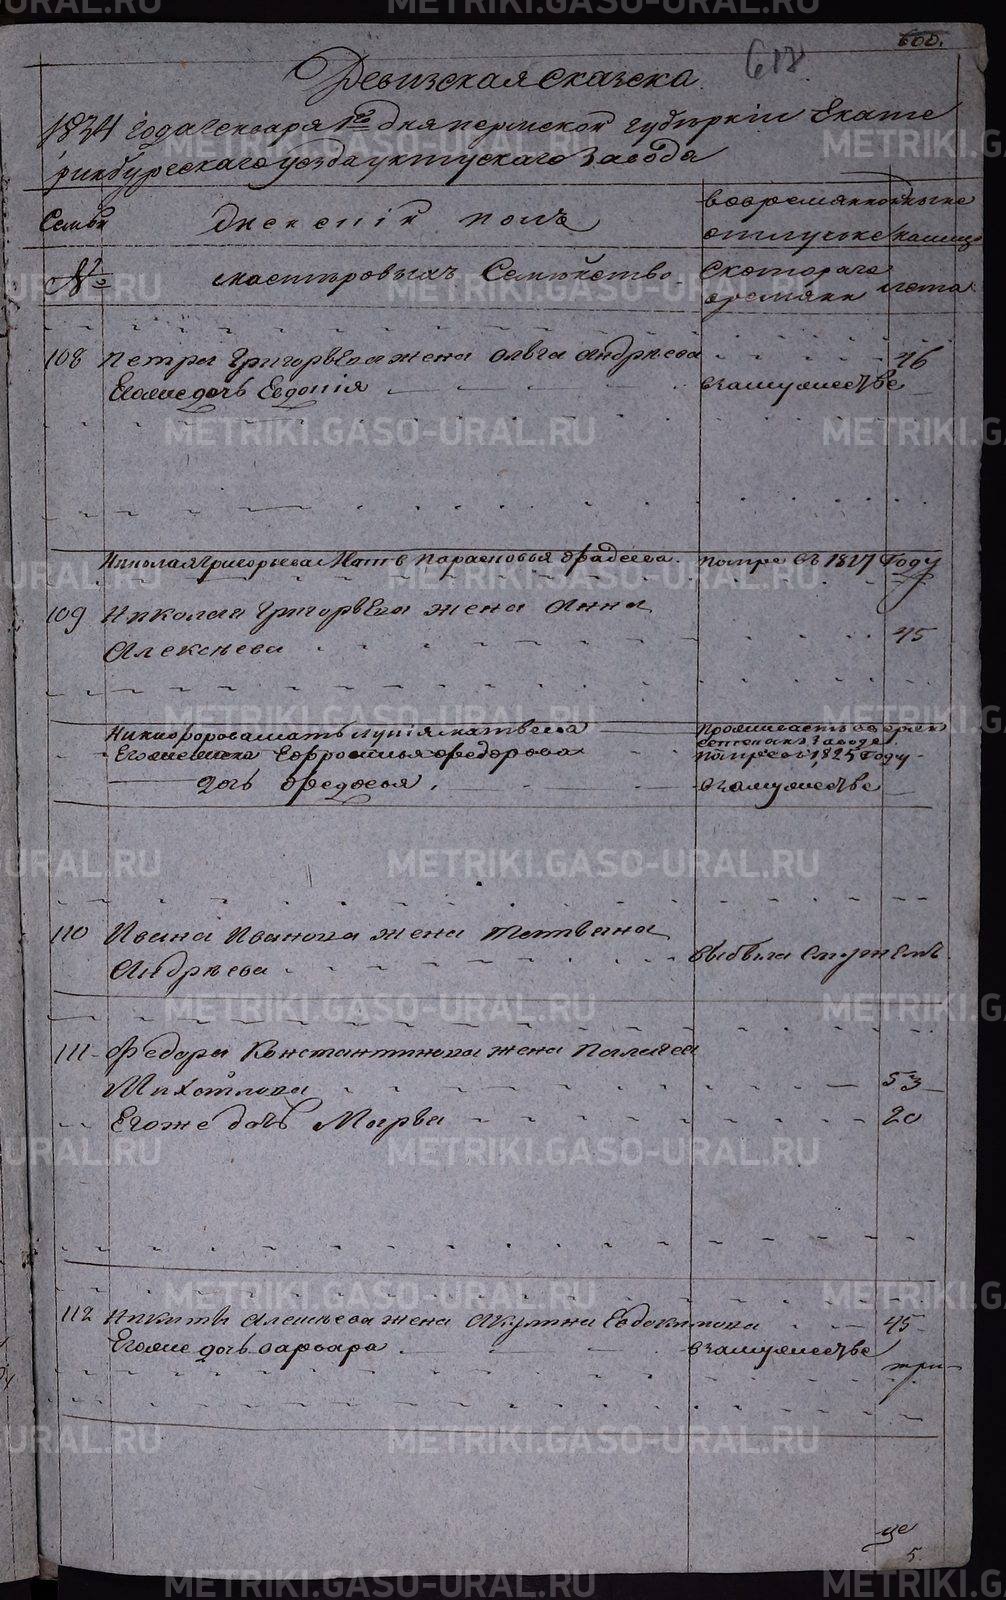 600.
618
Ревизская сказска
1834 года генваря 1го дня пермской губернии Екате
ринбургскаго уезда уктускаго завода
Семьи
женский полъ
вовремянной
отлучке
ныне
налицо
№
мастеровыхъ Семейство
Скотораго
времяни
лета
108 Петра Григорьева жена Ольга Андреева 46
Егоже дочь Евдокия взамужестве
Николая Григорьева Мать Парасковья Фадеева померла въ 1827 Году
109 Николая Григорьева жена Анна
Алексеева 45
Никифорова мать Лукия Матвеева
Егоже жена Ефросинья Федорова 1825 Году
дочь Федосья взамужестве
110 Ивана Иванова жена Татьяна
Андреева выбыла смужемъ
111 Федора Константинова жена Пелагея
Михайлова 53
Егоже дочь Марва 20
112 Никиты Алексеева жена Акулина Евдокимова 45
Егоже дочь варвара взамужестве
три
5
METRIKI.GASO-URAL.RU